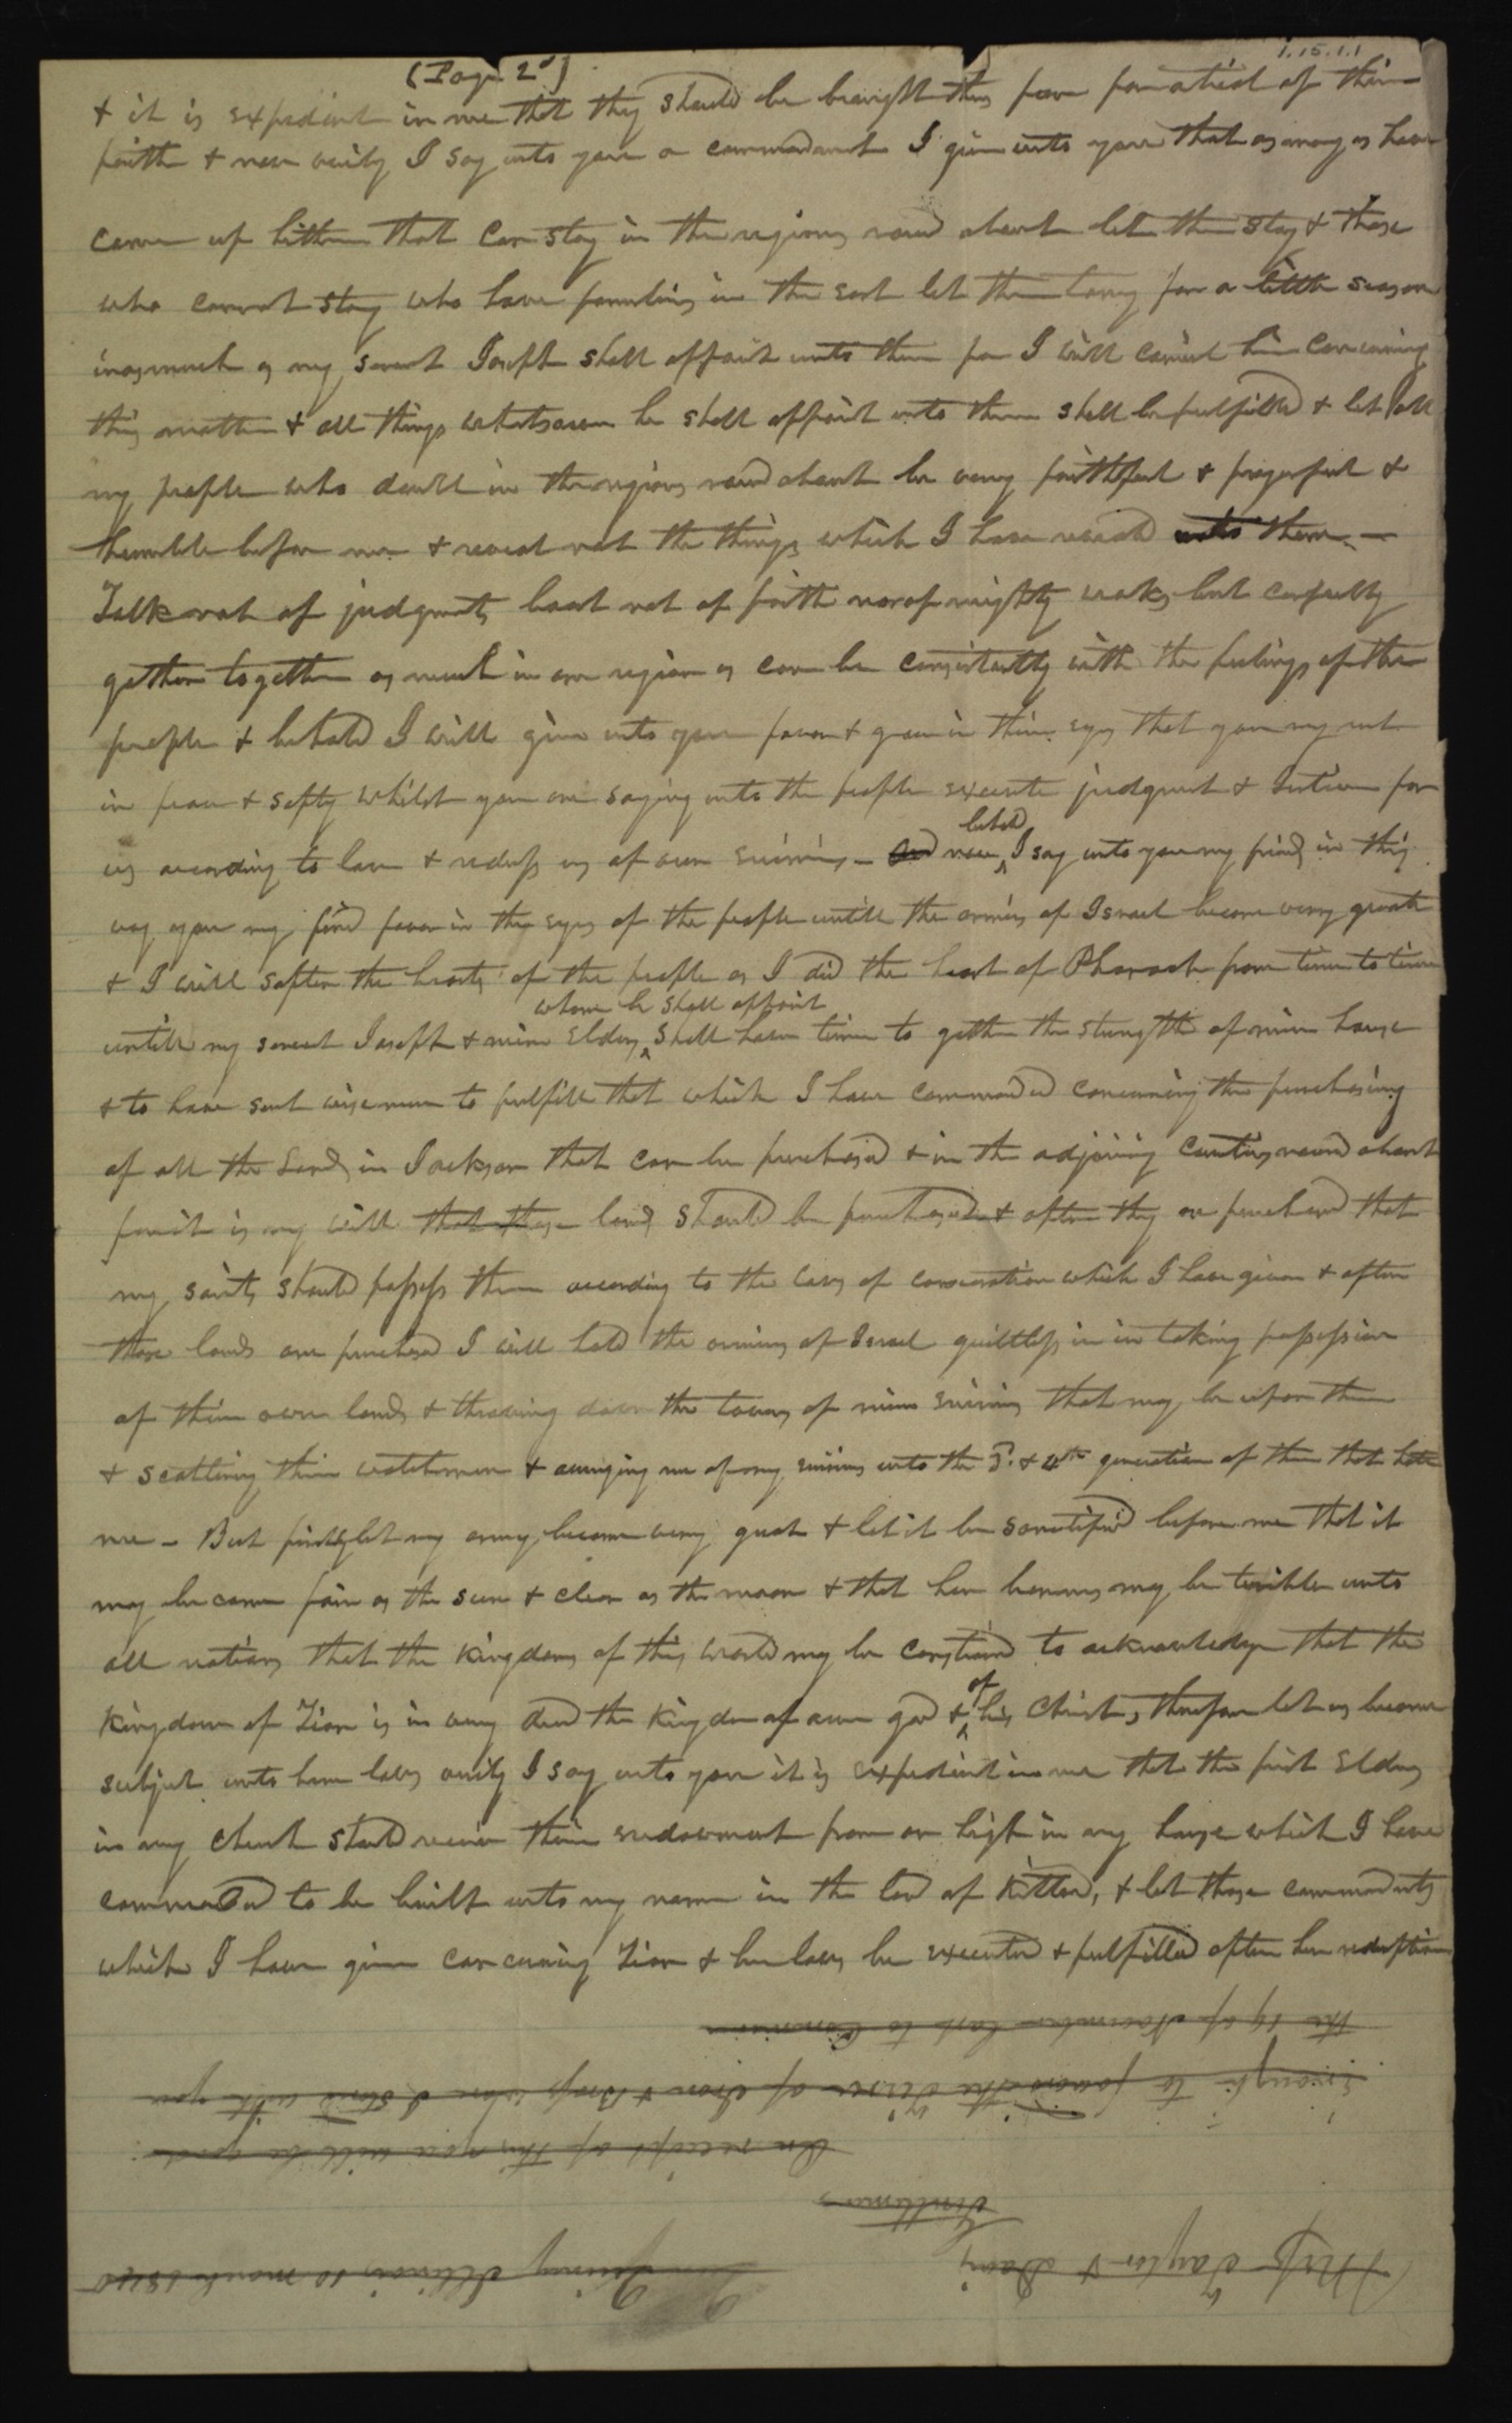 1.15.1.1
(Page 2d)
& it is expedient in me that they should be braught thus far for a trial of their
faith & now verily I say unto you a commandment I give unto you that as many as have
come up hither that can stay in the regions round about let them stay & those
who cannot stay who have families in the east let them tarry for a little season
inasmuch as my servant Joseph shall appoint unto them for I will councel him concerning
this matter & all things whatsoever he shall appoint unto them shall be fulfilled & let all
my people who dwell in the regions round about be very faithful & prayerful &
humble before me & reveal not the things which I have reveald unto them —
Talk not of judgments boast not of faith nor of mighty works but carfully
gather together as much in one region as can be consistantly with the feelings of the
people & behold I will give unto you favor & grace in their eyes that you may rest
in peace & safty whilst you are saying unto the people execute judgment & Justice for
us according to law & redress us of our enimies – and now behold I say unto you my friends in this
way you may find favor in the eyes of the people untill the armies of Israel become very greate
& I will soften the hearts of the people as I did the heart of Pharaoh from time to time
untill my servant Joseph & mine Elders whom he shall appoint shall have time to gather the strength of mine house
& to have sent wise men to fulfill that which I have commanded concerning the purchasing
of all the Lands in Jackson that can be purchased & in the adjoining Counties round about
for it is my will that these lands should be purchased & after they are purchased that
my saints should possess them according to the laws of consecration which I have given & after
these lands are purchased I will hold the armies of Israel guiltless in in taking possession
of their own lands & throwing down the towers of mine enimies that may be upon them
& scattering their watchmen & avenging me of my enimies unto the 3d. & 4th generation of them that hate
me – But first let my army become very great & let it be sanctified before me that it
may become fair as the sun & clear as the moon & that her banners may be terible unto
all nations that the kingdoms of this world may be constraind to acknowledge that the
kingdom of Zion is in very deed the kingdom of our god & of his Christ, therefore let us become
subject unto her laws verily I say unto you it is expedient in me that the first Elders
in my church should receive their endowment from on high in my house which I have
commanded to be built unto my name in the land of Kirtland, & let those commandments
which I have given concerning Zion & her laws be executed & fulfilled after her redemption
Quincy Illinois 10 march 1840
Messs Taylor & Davis
Gentlemen
On receipt of this you will be good
enough to forward the Peices of Iron & Brass when I stord with you
the 19 of November last to